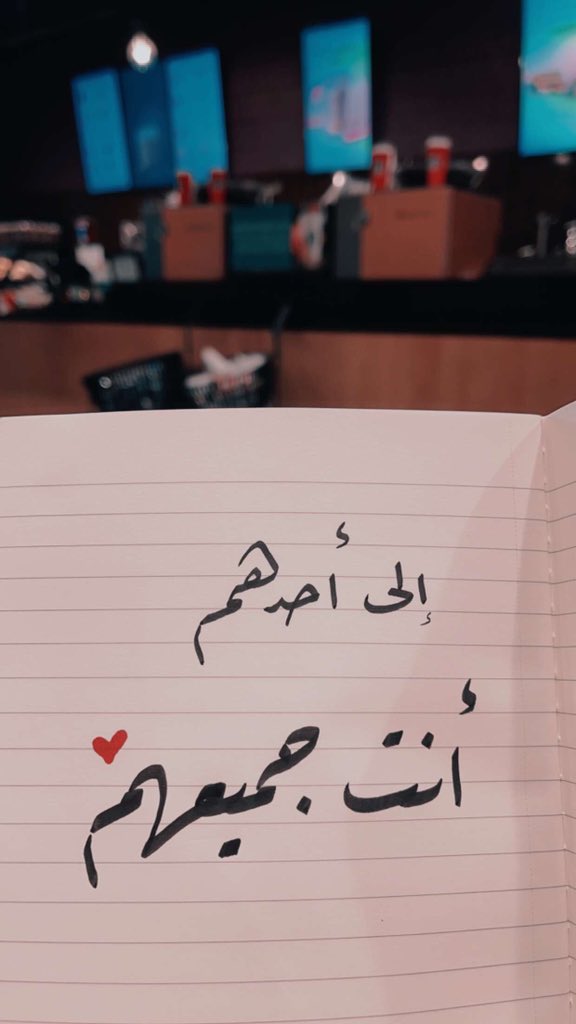 إلى أحدهم
أنت جميعهم